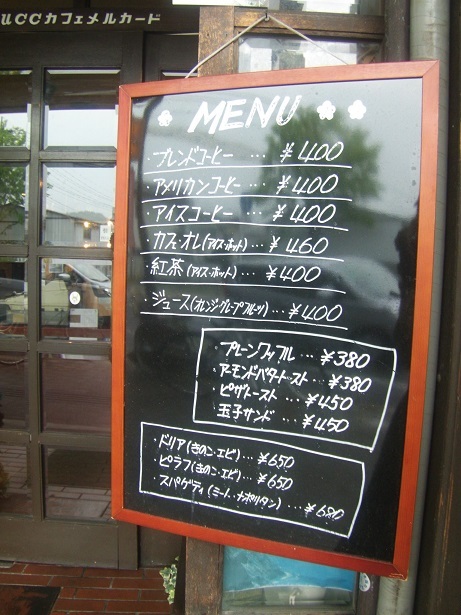 UCCカフェメルカード
MENU
・ブレンドコーヒー … ¥400
・アメリカンコーヒー … ¥400
・アイスコーヒー … ¥400
・カフェ・オレ(アイス・ホット) … ¥460
・紅茶(アイス・ホット) … ¥400
・ジュース(オレンジ・グレープフルーツ) … ¥400
・プレーンワッフル … ¥380
・アーモンドバタートースト … ¥380
・ピザトースト … ¥450
・玉子サンド … ¥450
・ドリア(きのこ・エビ) … ¥650
・ピラフ(きのこ・エビ) … ¥650
・スパゲティ(ミート・ナポリタン) … ¥680